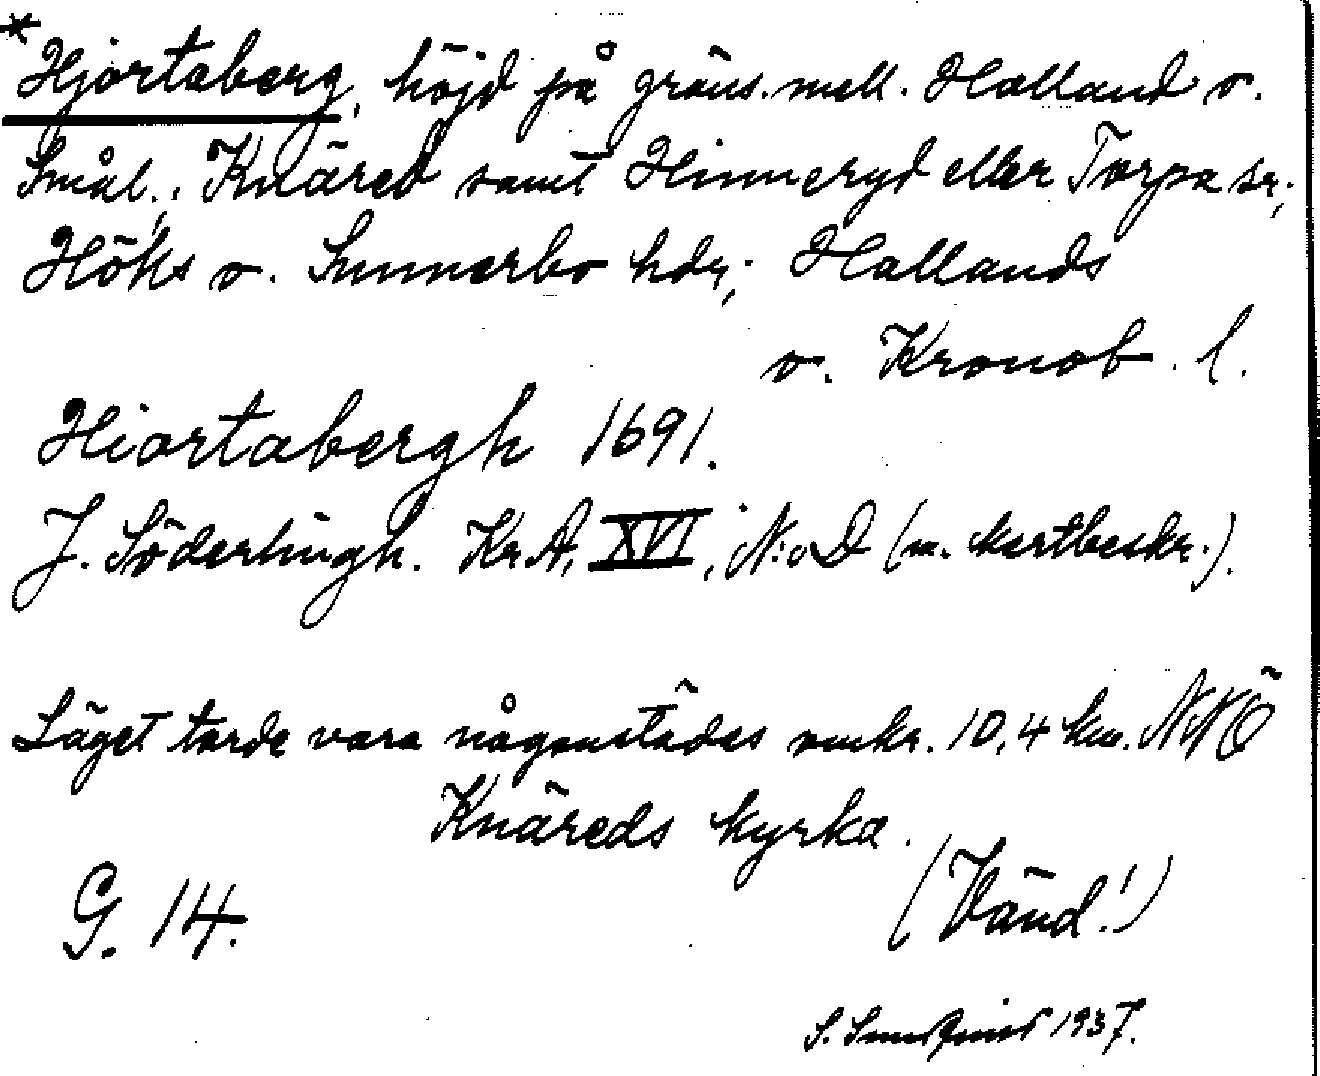 *Hjortaberg, höjd på gräns. mell. Halland o.
Smål., Knäred samt Hinneryd eller Torpa sr;
Höks o. Sunnerbo hdr; Hallands
o. Kronob. l.
Hiortabergh 1691.
J. Söderlingh. Kr.A, XVI, N:o D (m. kartbeskr.).
Läget torde vara någonstädes omkr. 10,4 km. NNÖ
Knäreds kyrka.
G. 14.
(Vänd!)
S. 1937.